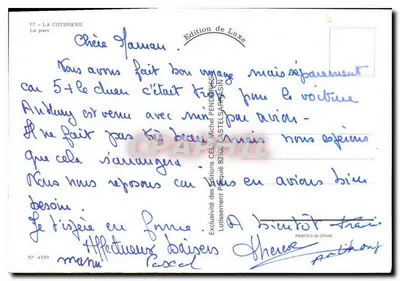 17 - LA COTINIERE
Le port
Edition de Luxe
Chère Maman.
Nous avons fait bon voyage mais séparément
car 5 + le chien c'était trop pour la voiture
Anthony est venu avec moi par avion -
Il ne fait pas très beau mais nous espérons
que cela s'arrangera
Nous nous reposons car nous en avions bien
besoin.
Je t'espère en forme. A bientôt
Affectueux baisers
Thérèse
manu Pascal
Anthony
N° 4599
PRINTED IN SPAIN
Exclusivité des Editions CELY, Michel
Lotissement Présqué 82100 CASTELSARRASIN